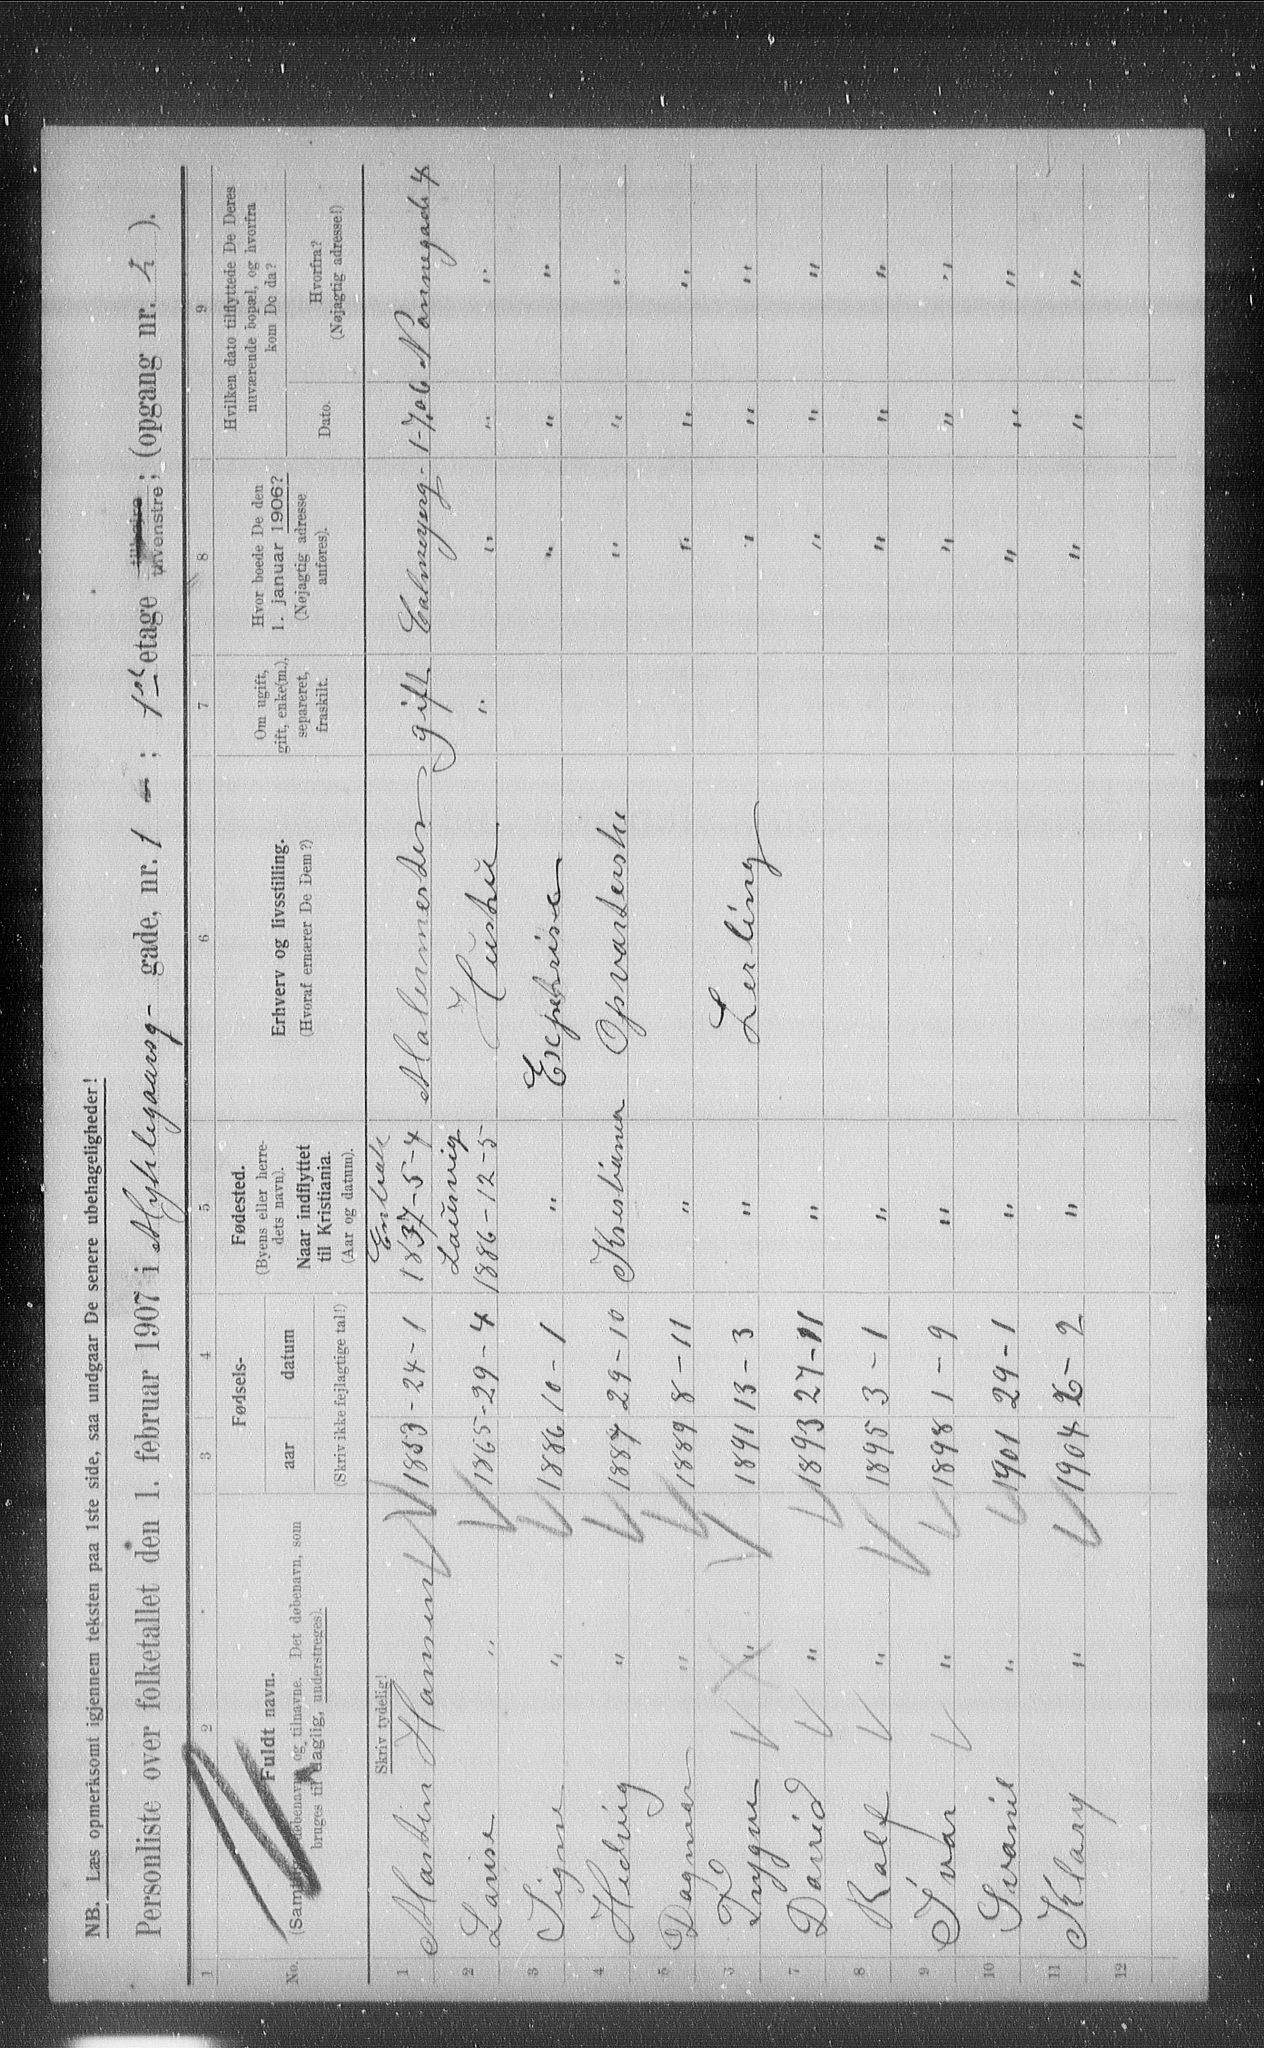 NB. Læs opmerksomt igjennem teksten paa 1ste side, saa undgaar De senere ubehageligheder!
Personliste over folketallet den 1. februar 1907 i gade, nr. 1; 1ste etage tilvenstre; (opgang nr. ).
1 2 3 4 5 6 7 8 9
No.
Fuldt navn.
(Samtlige døbenavne og tilnavne. Det døbenavn, som
bruges til daglig, understreges).
Fødsels-
aar datum
(Skriv ikke fejlagtige tal!)
Fødested.
(Byens eller herre-
dets navn).
Naar indflyttet
til Kristiania.
(Aar og datum).
Erhverv og livsstilling.
(Hvoraf ernærer De Dem?)
Om ugift,
gift, enke(m.),
separeret,
fraskilt.
Hvor boede De den
1. januar 1906?
(Nøjagtig adresse
anføres).
Hvilken dato tilflyttede De Deres
nuværende bopæl, og hvorfra
kom De da?
Dato.
Hvorfra?
(Nøjagtig adresse!)
Skriv tydelig!
1 Martin Hansen 1853-24-1 1837-5-4 Malermester gift Calmeyerg- 1-7.06 Nannegade 4
Laurvig
2 Lovise " 1865-29-4 1886-12-5 Hustru " " " "
3 Signe " 1886 10-1 " " " "
4 Hedvig " 1887 29-10 Kristiania Opvarterske " " "
5 Dagmar " 1889 8-11 " " " "
6 Trygve " 1891 13-3 " Lerling " " "
7 David " 1893 27-11 " " " "
8 Ralf " 1895 3-1 " " " "
9 Ivar " 1898 1-9 " " " "
10 Svanil " 1901 29-1 " " " "
11 Klary " 1904 26-2 " " " "
12